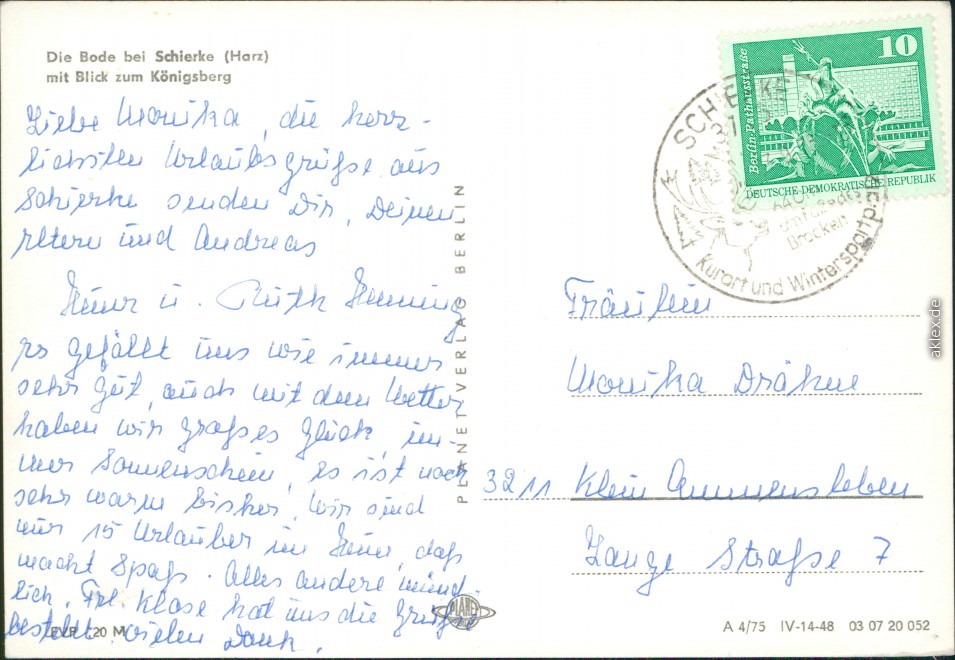 Die Bode bei Schierke (Harz)
mit Blick zum Königsberg
Liebe Monika, die herz-
lichsten Urlaubsgrüße aus
Schierke senden Dir, Deinen
Eltern und Andreas
Heinr u. Ruth Henning
Es gefällt uns wie immer
sehr gut, auch mit dem Wetter
haben wir großes Glück, im-
mer Sonnenschein, es ist noch
sehr warm bisher. Wir sind
nur 15 Urlauber im Heim, daß
macht Spaß. Alles andere münd-
lich. Frl. Klose hat uns die Grüße
bestellt. Vielen Dank.
EVP 20 M
PLANET VERLAG BERLIN
PLANET
10
Berlin-Rathausstraße
DEUTSCHE DEMOKRATISCHE REPUBLIK
SCHIERKE
am Fuße des
Brocken
Kurort und Wintersportplatz
Fräulein
Monika Dräkne
3211 Klein Ammensleben
Lange Straße 7
A 4/75 IV-14-48 03 07 20 052
aklex.de